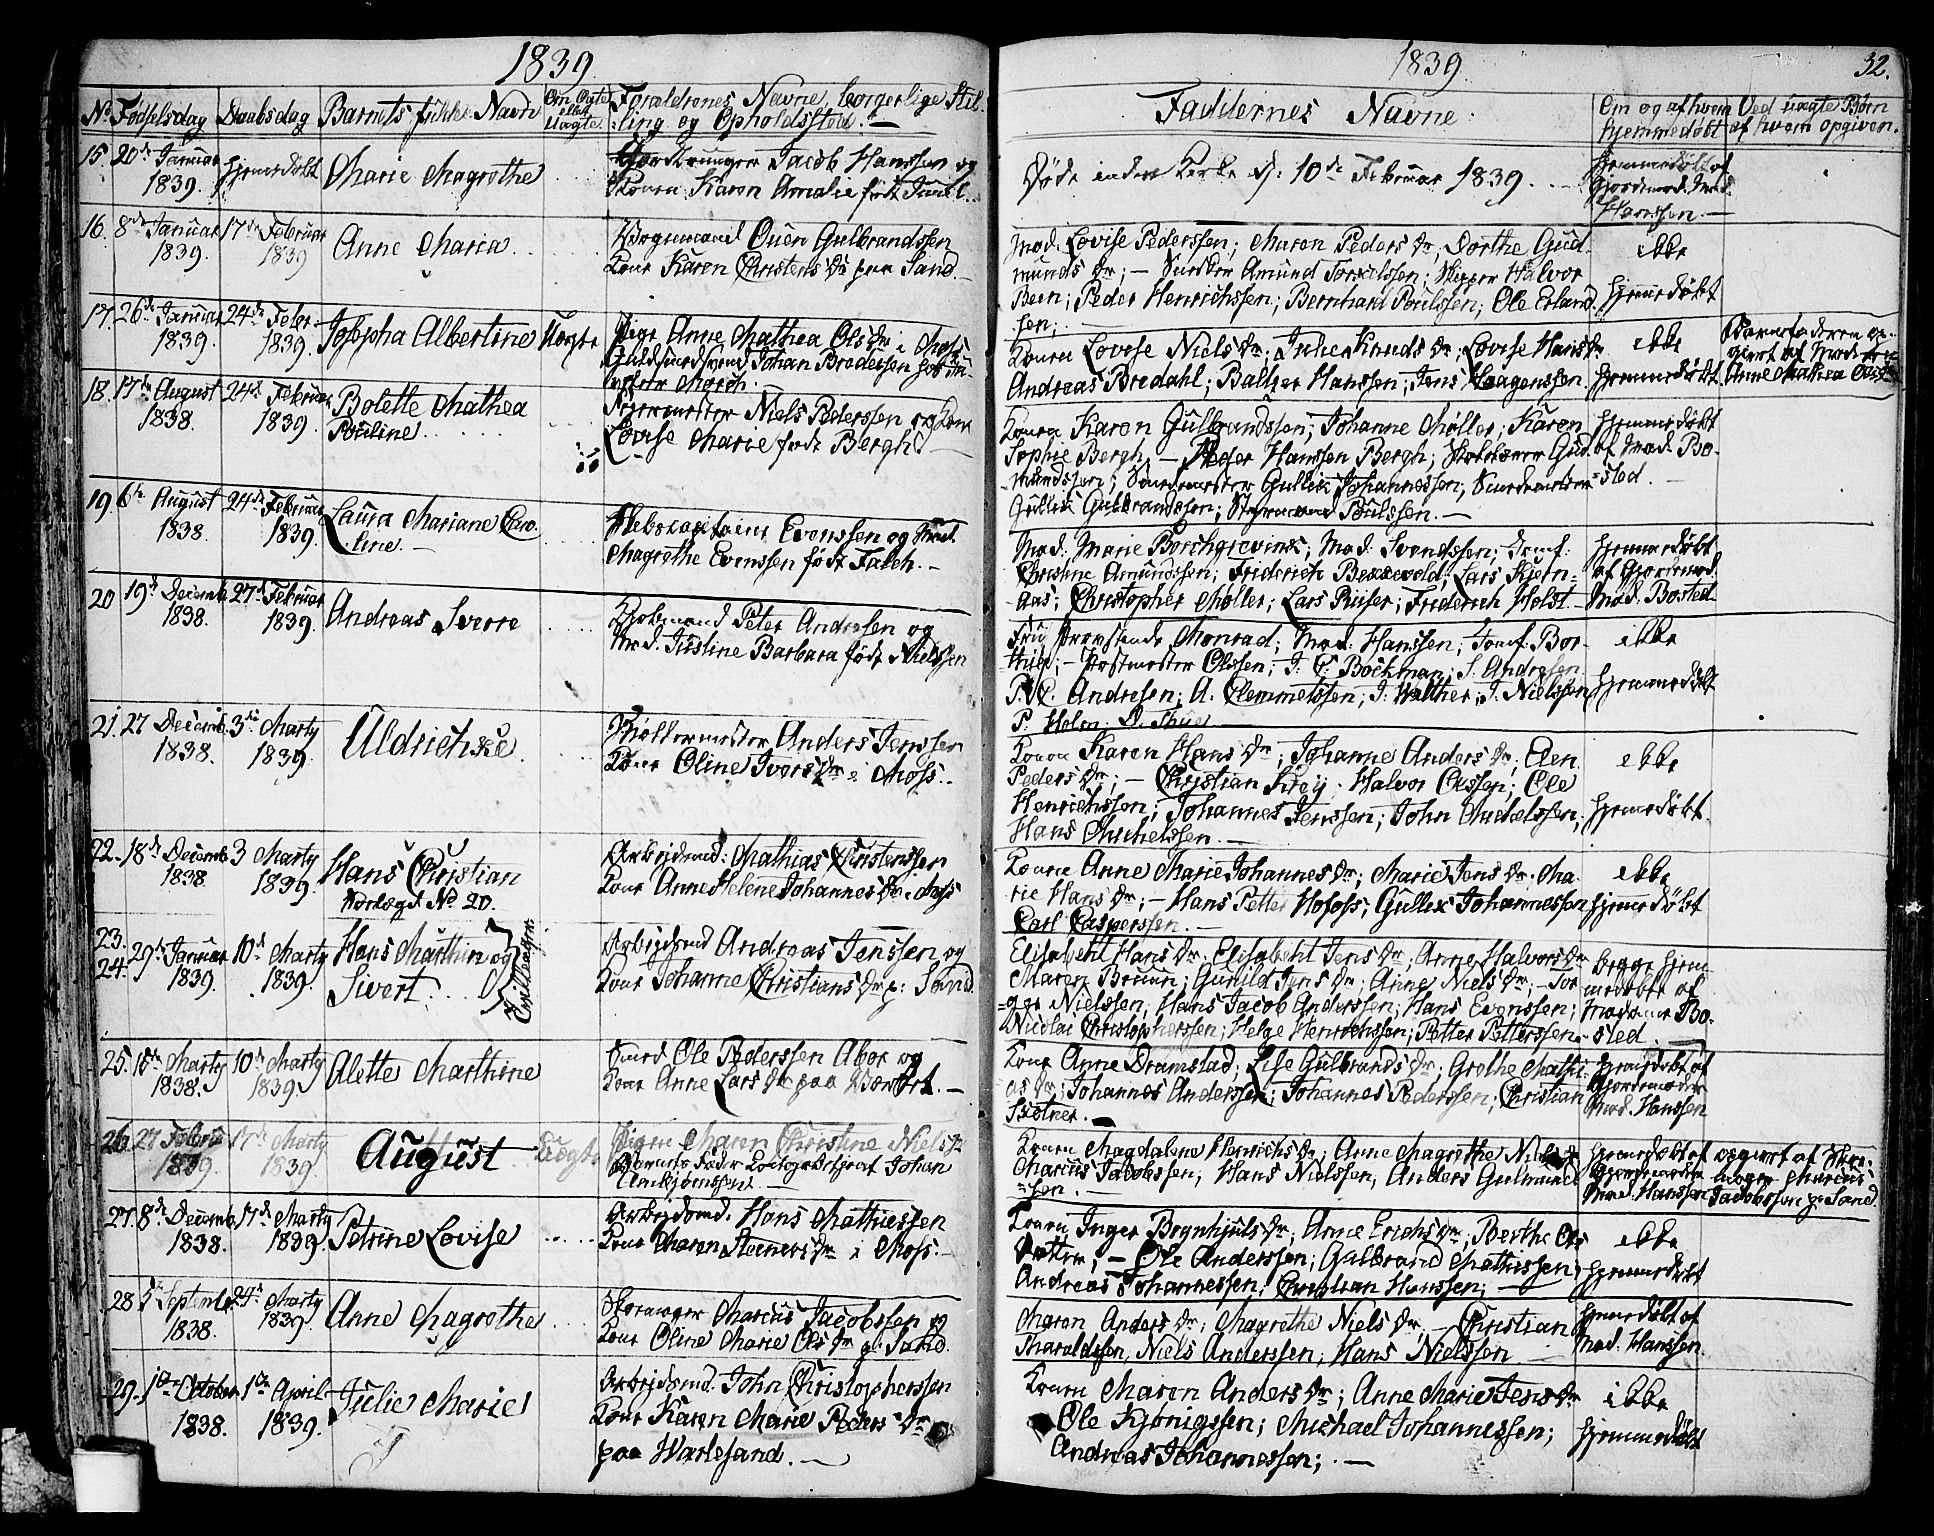 1839
No Fødselsdag Daabsdag Barnets fulde Navn Om Ægte eller Uægte Forældrenes Navne borgerlige Stil-
ling og Opholdssted. —
15. 20de Januar 1839. hjemmedøbt Marie Magrethe
Jacob Hanssen og
Konen Karen Amalie født
16. 8de Januar 1839. 17de Februar 1839 Anne Maria
Vognmand Ouen Gulbrandssen
Kone Karen Christens Dr paa Sand. —
17. 26de Januar 1839. 24de Febr 1839. Josepha Albertine Uægte
Pige Anne Mathea Ols Dr i Moss
Guldsmedsvend Johan Bredersen hos
18. 17de August 1838. 24de Februar 1839. Bolette Mathea
Pouline
Niels Pedersen og Kone
Lovise Marie født Bergh
19 6te August 1838. 24de Februar 1839. Laura Mariane Caro-
line. —
Skibscapitaine Evenssen og Mad.
Magrethe Evenssen født Falch. —
20 19de Decemb. 1838. 27de Februar 1839. Andreas Sverre
Peter Andresen og
Mad. Justine Barbara født Nielssen
21. 27 Decemb. 1838. 3die Marty 1839. Uldrichke
Anders Jenssen
Kone Oline Ivers Dr i Moss.
22. 18de Decemb. 1838. 3 Marty 1839. Hans Christian
Nr 20.
Arbejdsmd: Mathias Christenssen
Kone Anne Helene Johannes Dr i Moss
23.
24. 29de Januar 1839. 10de Marty 1839. Hans Marthin og
Sivert. Tvillinger.
Arbejdsmd Andreas Jenssen og
Kone Johanne Christians Dr p: Sand.
25. 18de Marty 1838. 10de Marty 1839. Alette Marthine
Smed Ole Pederssen Abor og
Kone Anne Lars Dr paa
26. 27 Febru 1839. 17de Marty 1839. August Uægte
Pigen Maren Christine Niels Dr
Barnets Fader Johan
27. 8de Decemb. 1838. 17de Marty 1839. Petrine Lovise
Arbejdsmd. Hans Mathiessen
Kone Maren Steners Dr i Moss.
28. 5te Septembr 1838. 24de Marty 1839. Anne Magrethe
Marcus Jacobssen og
Kone Oline Marie Ols Dr p: Sand.
29. 1ste October 1838. 1ste April 1839. Julie Marie
Arbejdsmd. John Christopherssen
Kone Karen Marie Peders Dr
paa Warlesand. —
1839 32.
Faddernes Navne. Om og af hvem hjemmedøbt Ved uægte Børn af hvem opgiven.
Døde inden Kirke d: 10de Februar 1839. hjemmedøbt af
Gjordemod. Mad.
Hanssen. —
Mad. Lovise Pederssen; Maren Peders Dr; Dorthe Gud-
munds Dr; — Snedker Amund Torkilssen; Skipper Halvor
Been; Peder Henrichssen; Bernhard Poulssen; Ole Erland-
sen; ikke
hjemmedøbt
Konen Lovise Niels Dr; Julie Knuds Dr; Lovise Hans Dr
Andreas Bredahl; Baltzer Hanssen; Jens Haagenssen. ikke
hjemmedøbt Barnefaderen op-
givet af
Anne Mathea Ols Dr
Konen Karen Gulbrandssen; Johanne Møller; Karen
Sophie Bergh — Peder Hanssen Bergh; Gud-
mundssen; Snedkermester Gullik Johannessen; Snedkermester
Gullik Gulbrandssen; Styrmand Poulssen. — hjemmedøbt
af Mad. Bo-
sted
Mad. Marie Borchgrevink; Mad. Svendssen; Jomf.
Christine Amundssen; Friderich Bexxevold; Lars Kjern-
aas; Christopher Møller; Lars Riiser; Friderich Holst. — hjemmedøbt
af Gjordemod.
Mad. Bosted
Fru Monrad; Mad. Hanssen; Jomf. Bor-
— Postmester Olssen; J. C. Bockman; S. Andresen
P. C. Andresen; A. Clemmetssen; J. Walther; J. Nielssen
P. Holen; D. Thue — ikke
hjemmedøbt
Konen Karen Hans Dr; Johanne Anders Dr; Elen
Peders Dr; — Christian Krey; Halvor Olssen; Ole
Henrichssen; Johannes Jenssen; John Michelssen;
Hans Michelssen. — ikke
hjemmedøbt
Konen Anne Marie Johannes Dr; Marie Jens Dr; Ma-
rie Hans Dr; — Hans Petter Hofoss; Gullik Johannessen
Carl Casperssen. — ikke
hjemmedøbt
Elisabeth Hans Dr; Elisabeth Jens Dr; Anne Halvors Dr
Maren Bruun; Gunild Jens Dr; Anne Niels Dr; — Tor
ger Nielssen; Hans Jacob Anderssen; Hans Evenssen;
Nicolai Christopherssen; Helge Henrichssen; Petter Petterssen. — begge hjem-
medøbte af
Madame Bo-
sted
Kone Anne Dramstad; Lise Gulbrands Dr; Grethe Mathi-
as Dr; Johannes Anderssen; Johannes Pederssen; Christian
Skolner. — hjemmedøbt af
Gjordemoder
Mad. Hanssen
Konen Magdalene Henrichs Dr; Anne Magrethe Niels Dr
Marcus Jacobssen; Hans Nielssen; Anders Gulmund-
sen. — hjemmedøbt af
Gjordemoder
Mad. Hanssen opgivet af
Marcus
Jacobssen p: Sand
Konen Inger Brynhjuls Dr; Anne Erichs Dr; Berthe Ols
Datter; — Ole Anderssen; Gulbrand Mathissen;
Andreas Johannessen; Christian Hanssen; — ikke
hjemmedøbt
Maren Anders Dr; Magrethe Niels Dr; — Christian
Tharaldssen, Niels Anderssen; Hans Nielssen — hjemmedøbt af
Mad. Hanssen
Konen Maren Anders Dr; Anne Marie Jens Dr
Ole Kjønigssen; Michael Johannessen;
Andreas Johannessen; — ikke
hjemmedøbt